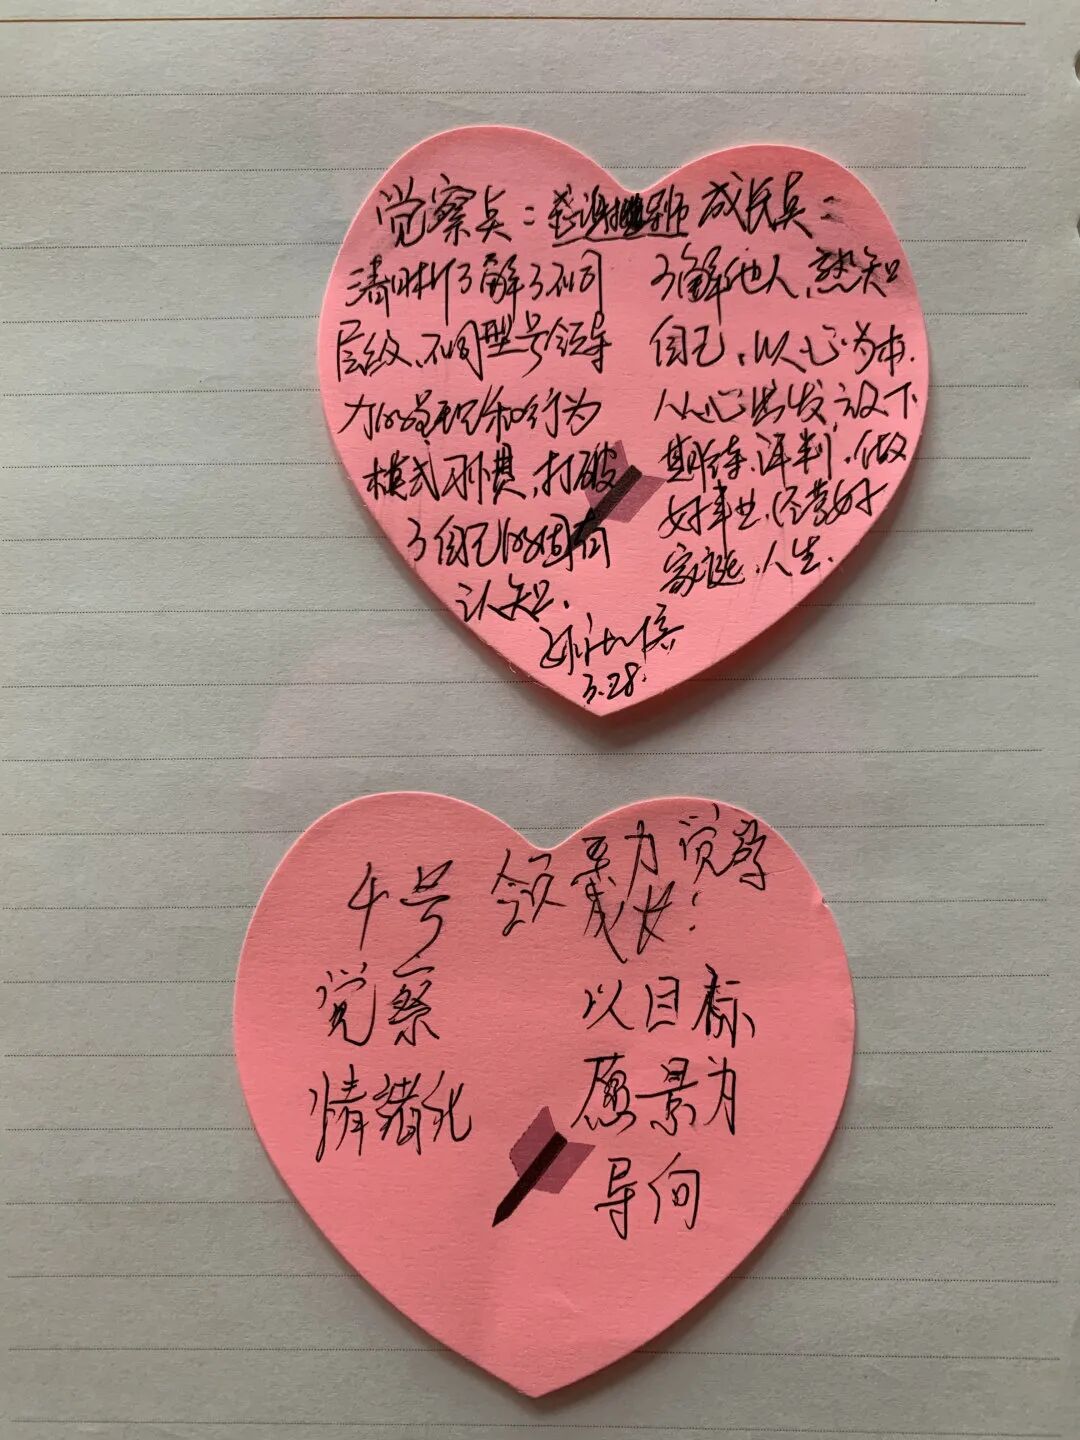 觉察点：感谢导师
清晰了解了不同
层级、不同型号领导
力的呈现和行为
模式习惯，打破
了自己的固有
认知.
成长点：
了解他人、熟知
自己，以心为本.
从心出发，放下
期待、评判，做
好事业，经营好
家庭、人生.
3.28.
4号
觉察
情绪化
领导力觉察
成长：
以目标
愿景为
导向